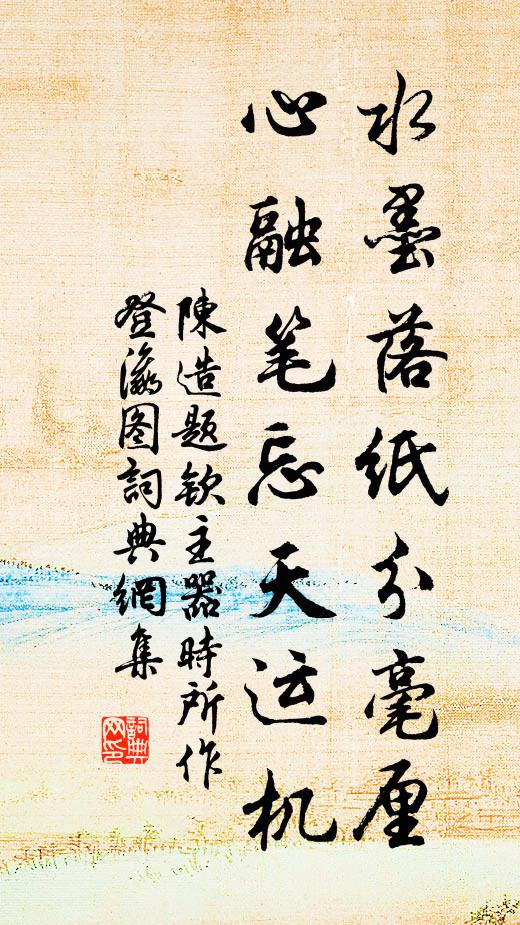 水墨落纸分毫厘
心融笔忘天运机
陳造题钦主器時所作
登瀛图詞典網集
詞典网印